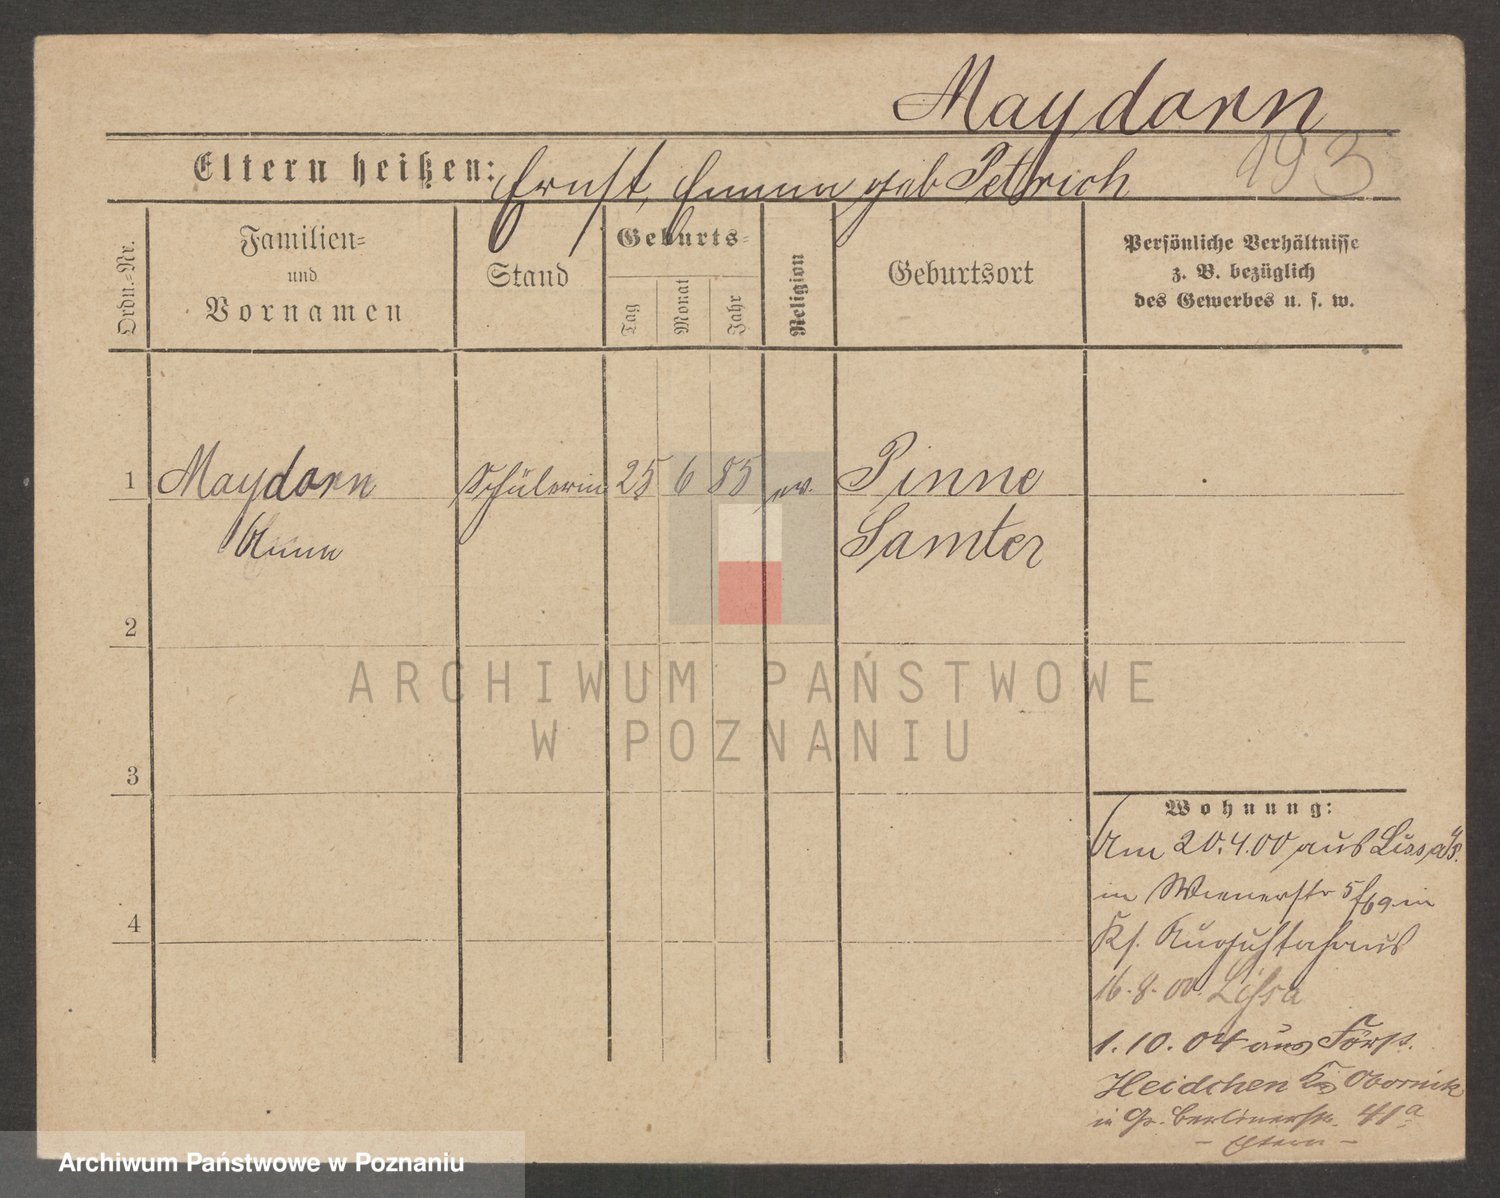 Maydorn
193
Eltern heißen: Ernst, Emma geb Petrich
Ordn.=Nr.
Familien=
und
Vornamen
Stand
Geburts=
Tag
Monat
Jahr
Religion
Geburtsort
Persönliche Verhältnisse
z. B. bezüglich
des Gewerbes u. s. w.
1 Maydorn Schülerin 25 6 85 ev. Pinne
Anna Samter
2
3
4
ARCHIWUM PAŃSTWOWE
W POZNANIU
Wohnung:
Am 20.4.00 aus Lissa
in Wienerstr 5 in
Augustahaus
16.8.00. Lissa
1.10.04 aus Först.
Heidchen Obornik
in Gr. Berlinerstr. 41a
- Eltern -
Archiwum Państwowe w Poznaniu